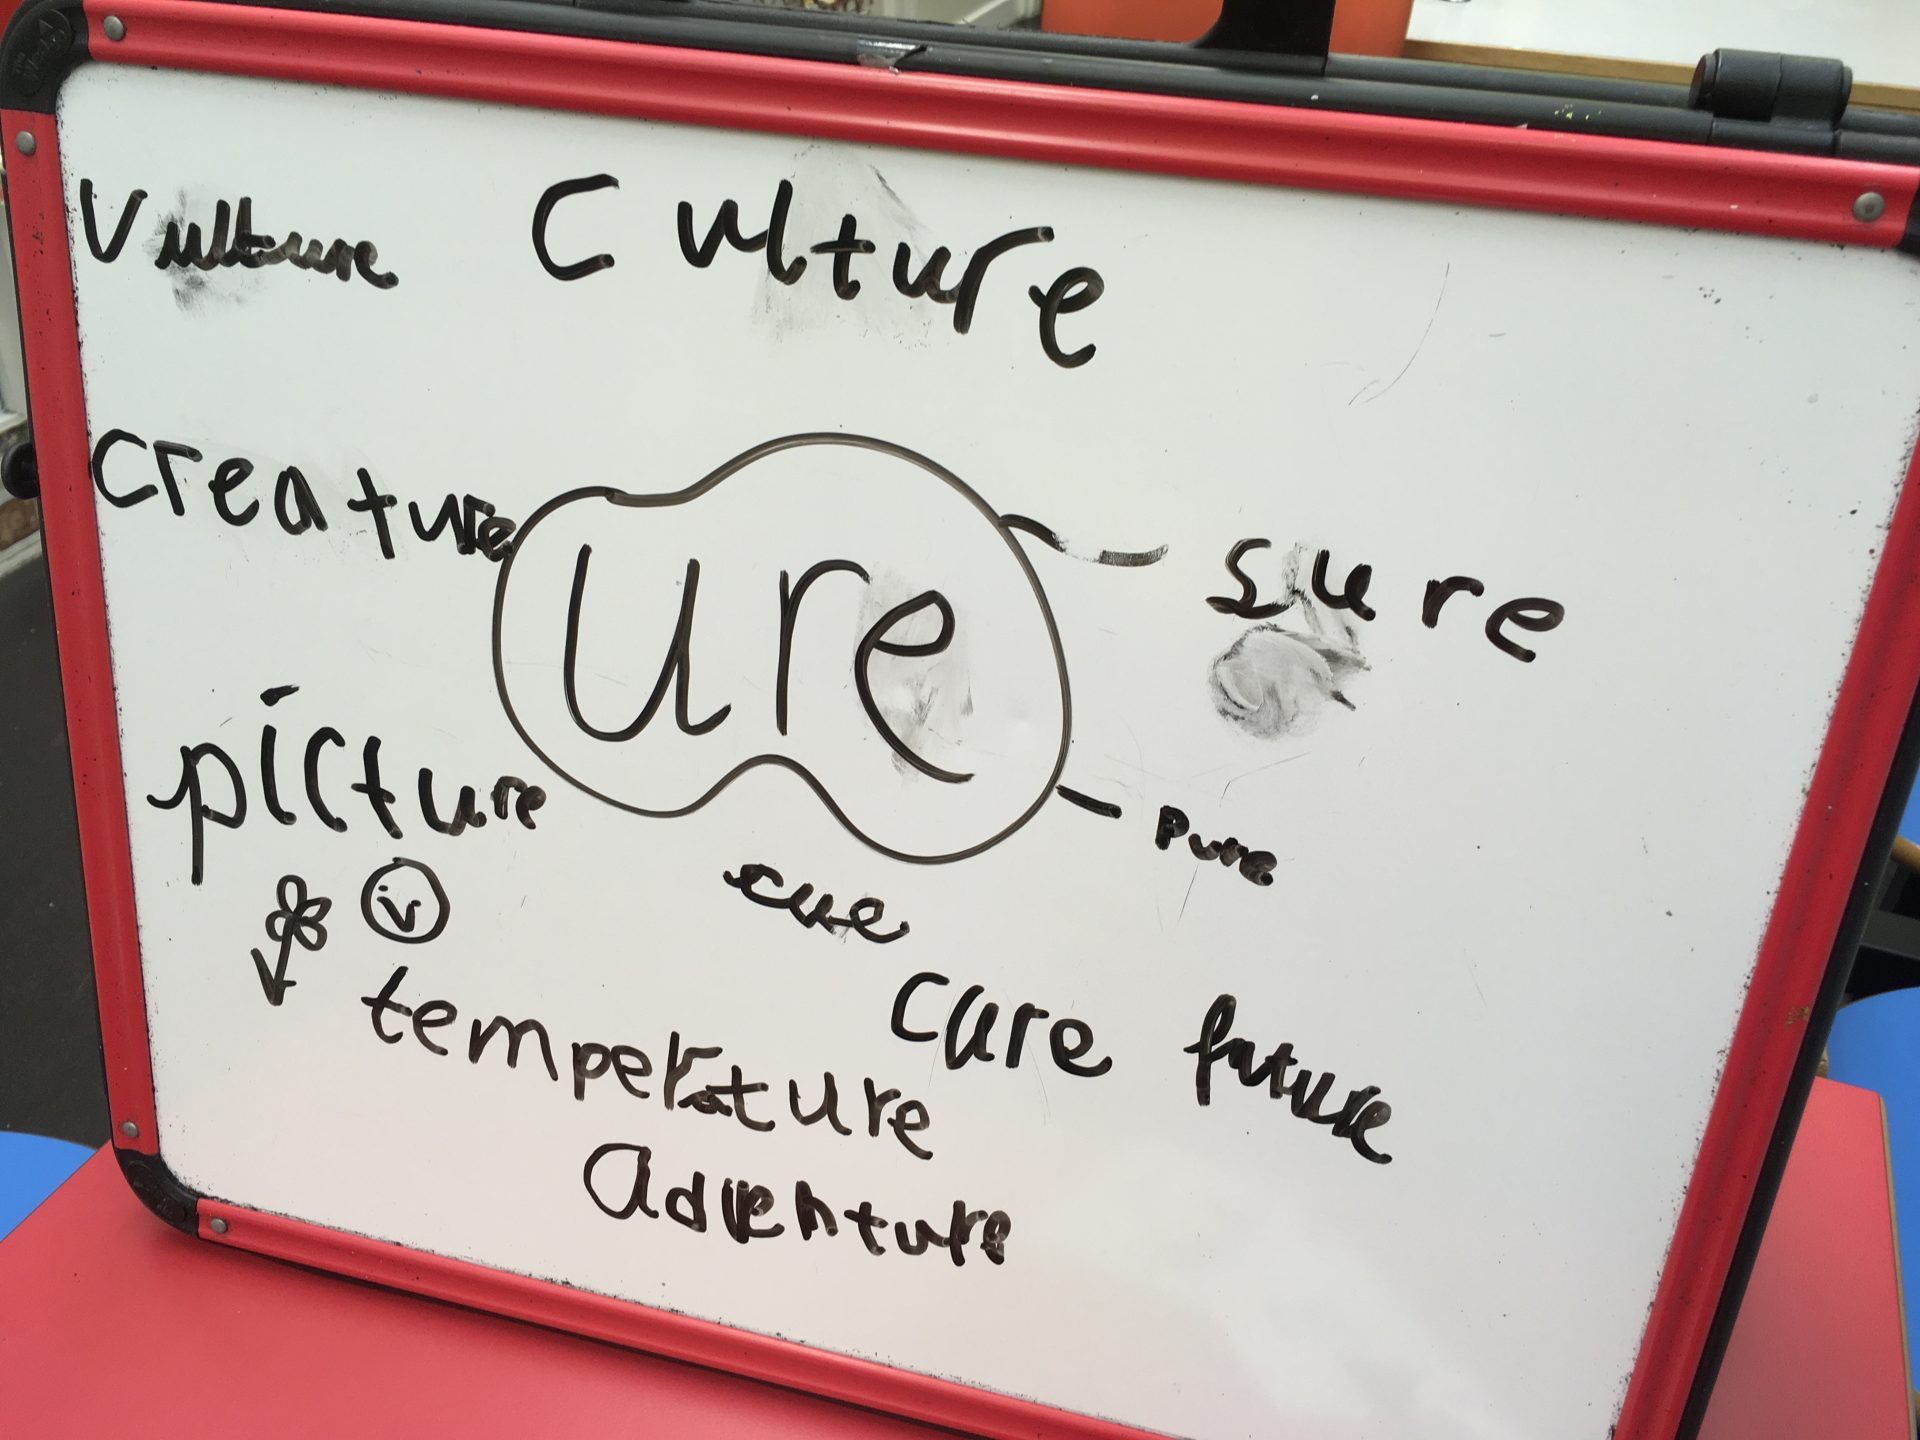 Vulture Culture
creature
ure
sure
picture
Pure
cure
temperature
future
adventure